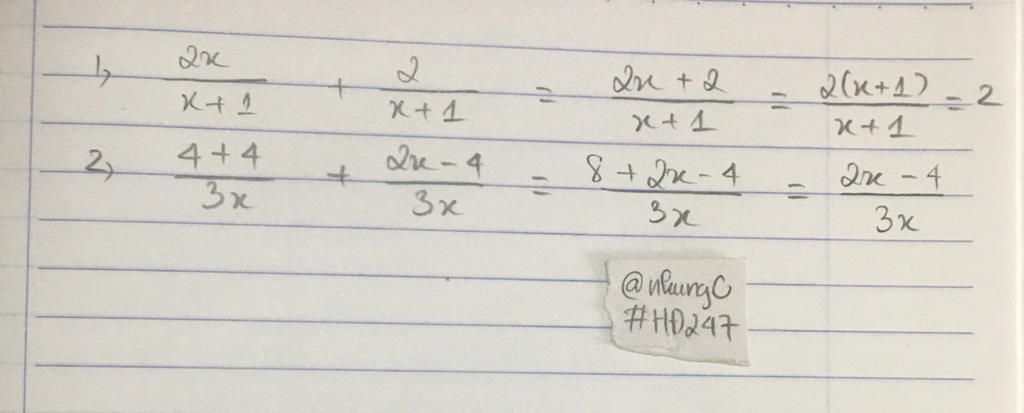 1, 2x/(x+1) + 2/(x+1) = (2x+2)/(x+1) = 2(x+1)/(x+1) = 2
2, (4+4)/(3x) + (2x-4)/(3x) = (8+2x-4)/(3x) = (2x-4)/(3x)
@nhungC
#HD247